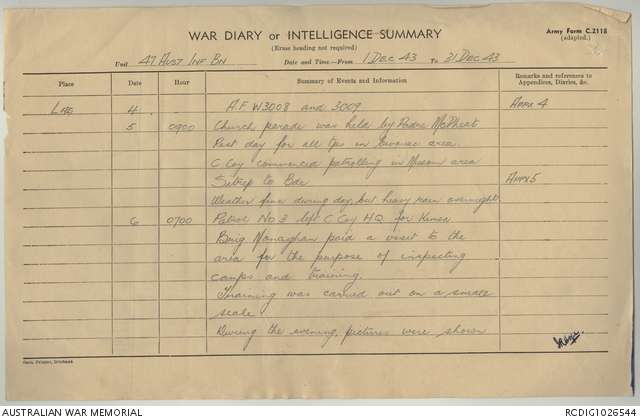 WAR DIARY or INTELLIGENCE SUMMARY
(Erase heading not required)
Army Form C.2118
(adapted.)
Unit 47 AUST INF BN Date and Time—From 1 DEC 43 To 31 DEC 43
Place Date Hour Summary of Events and Information Remarks and references to Appendices, Diaries, &c.
LAE 4 A.F W3008 and 3009 APPX 4
5 0900 Church parade was held by Padre McPheat
Rest day for all tps in bivouac area.
C Coy commenced patrolling in Mission area
Sitrep to Bde APPX 5
Weather fine during day, but heavy rain overnight.
6 0700 Patrol No 3 left C Coy HQ for
Brig Monaghan paid a visit to the
area for the purpose of inspecting
camps and training.
Training was carried out on a small
scale
During the evening, pictures were shown
AUSTRALIAN WAR MEMORIAL
RCDIG1026544